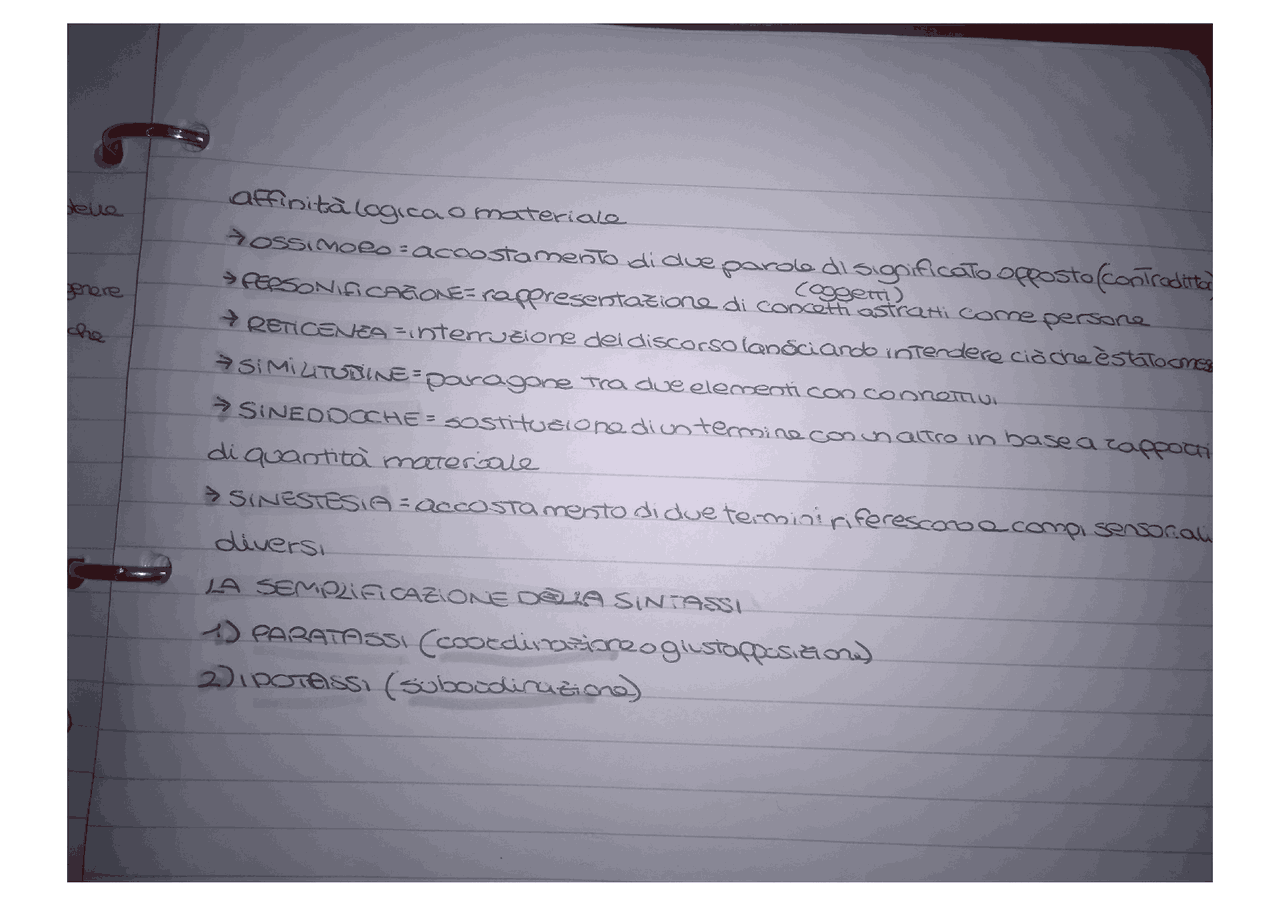 affinità logica o materiale
→ OSSIMORO = accostamento di due parole di significato opposto (contraditta
(oggetti)
→ PERSONIFICAZIONE = rappresentazione di concetti astratti come persone
→ RETICENZA = interruzione del discorso lansciando intendere ciò che è stato omes
→ SIMILITUDINE = paragone tra due elementi con connettivi
→ SINEDDOCHE = sostituzione di un termine con un altro in base a rapporti
di quantità materiale
→ SINESTESIA = accostamento di due termini riferescono a campi sensoriali
diversi
LA SEMPLIFICAZIONE DELLA SINTASSI
1) PARATASSI (coordinazione o giustapposizione)
2) IPOTASSI (subordinazione)
delle
genere
che